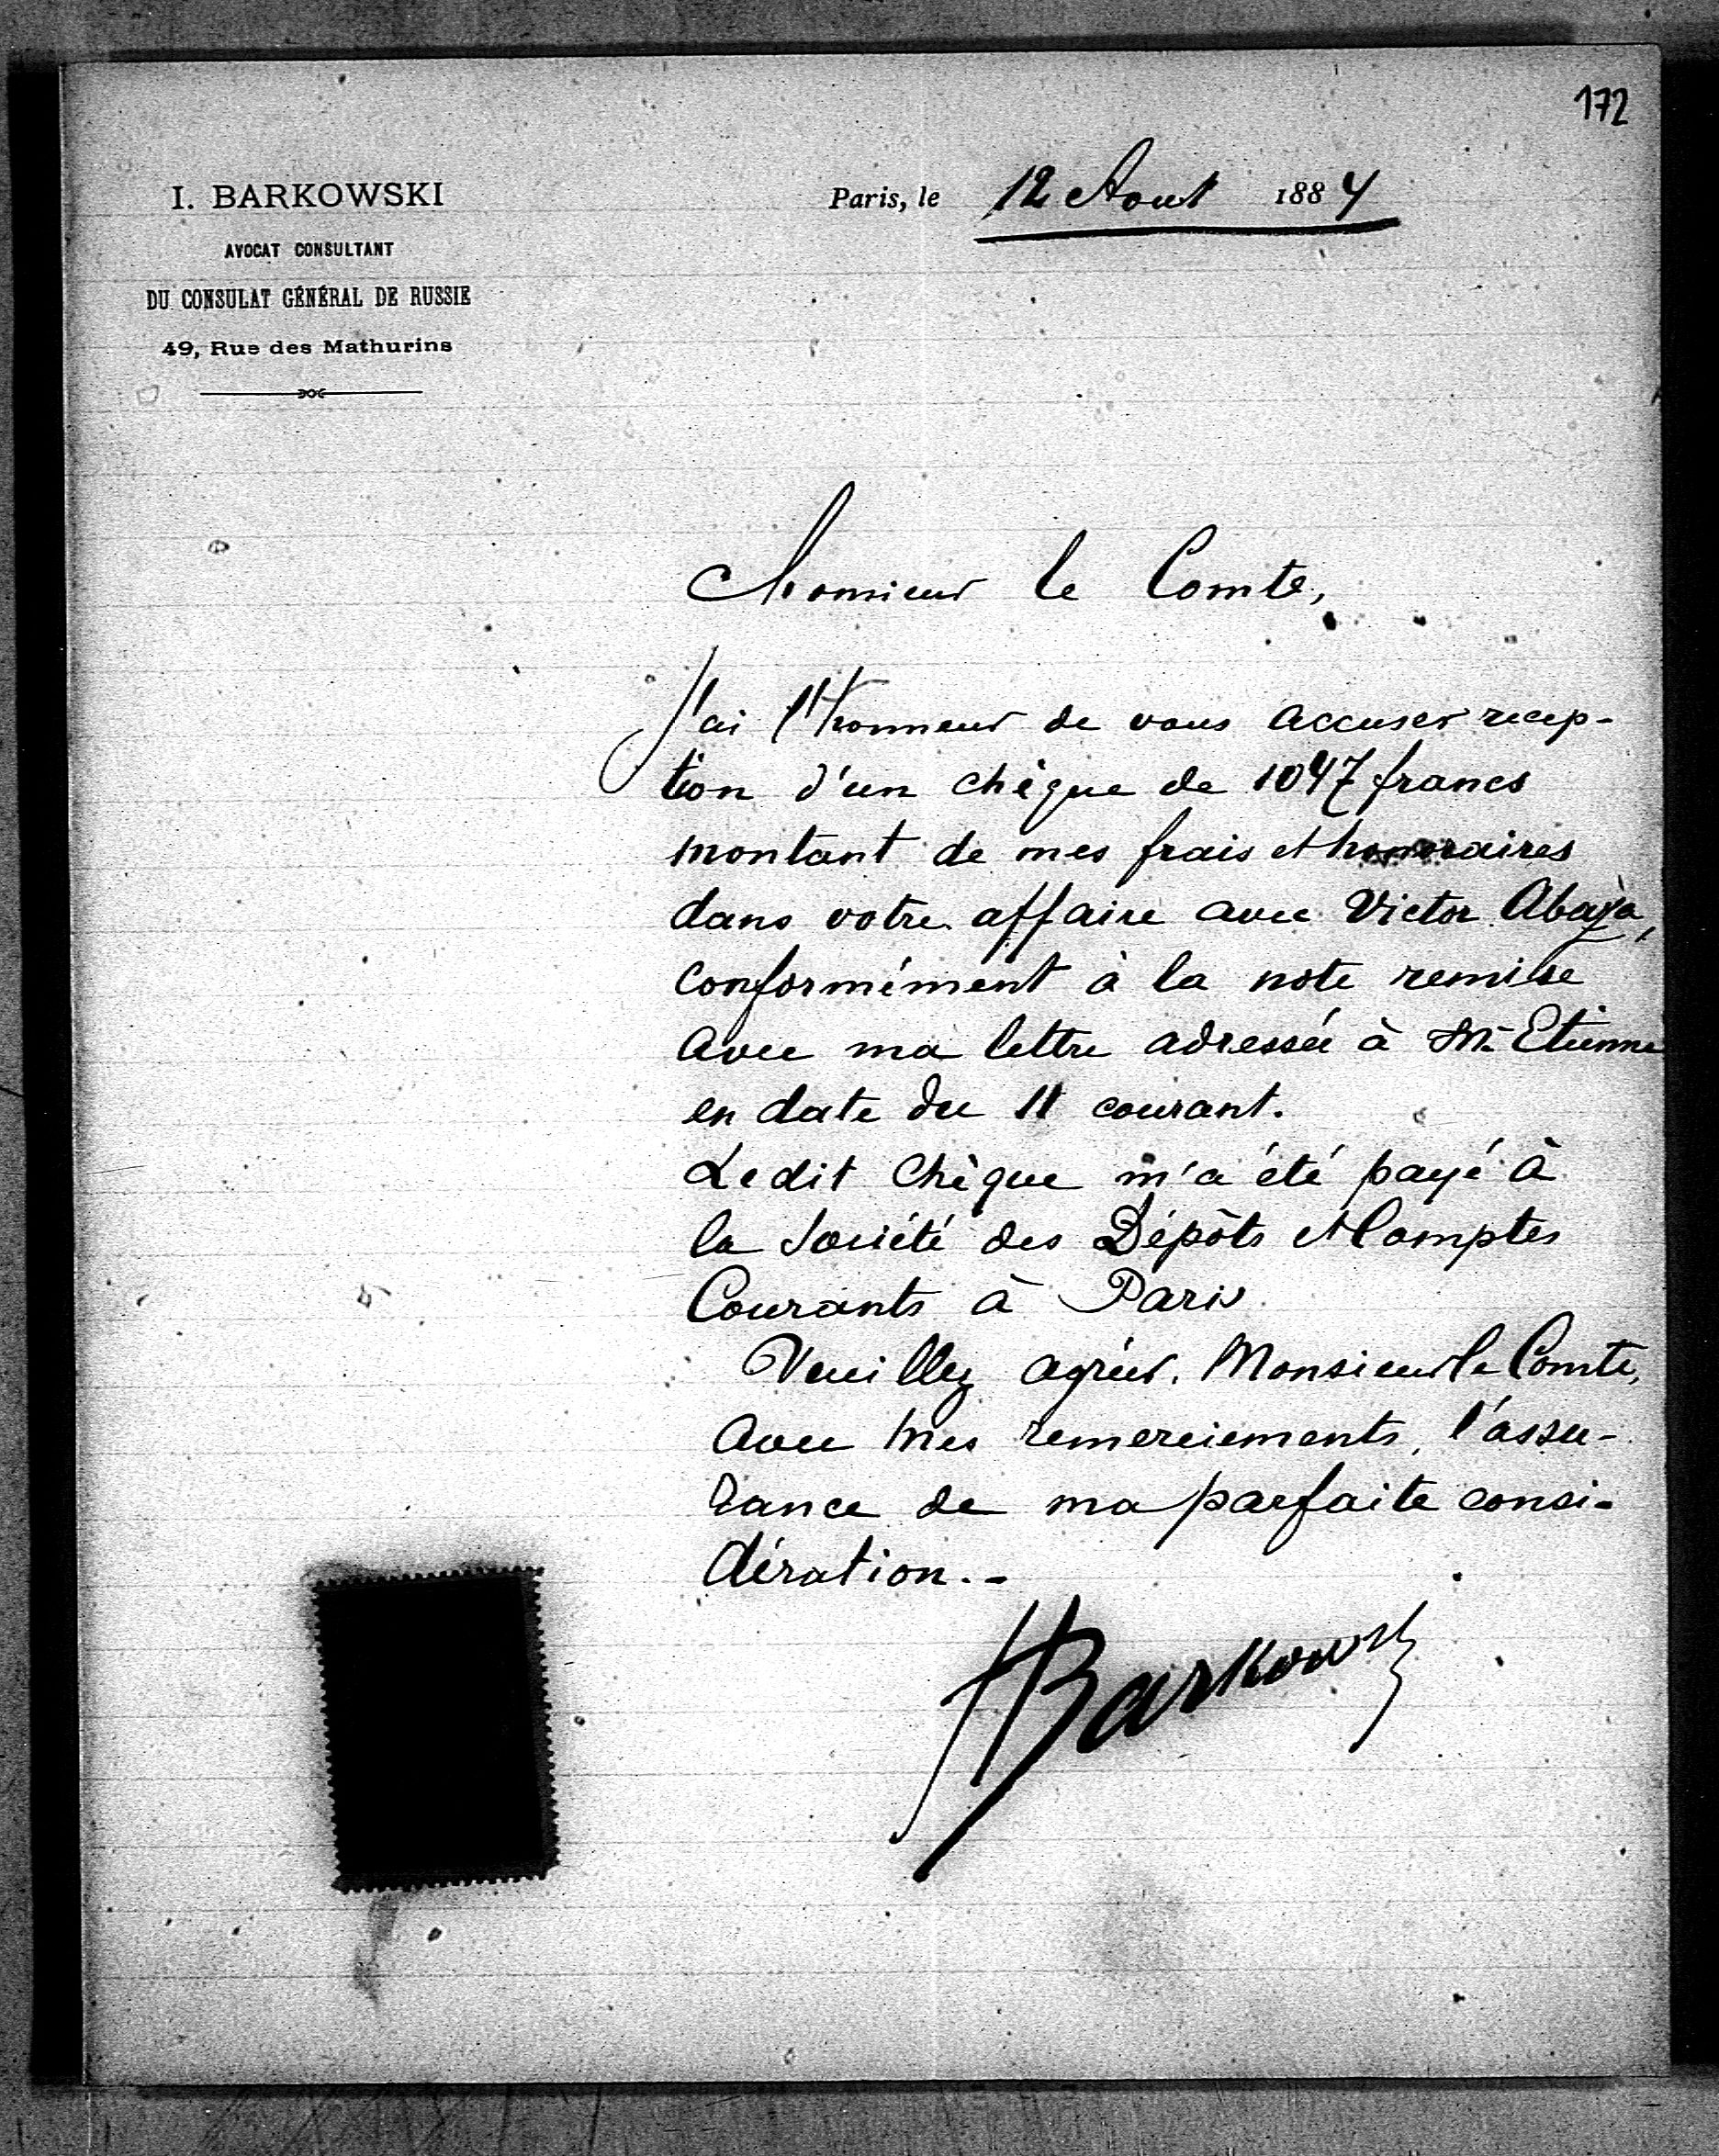 172
I. BARKOWSKI
AVOCAT CONSULTANT
DU CONSULAT GÉNÉRAL DE RUSSIE
49, Rue des Mathurins
Paris, le 12 Aout 1884
Monsieur le Comte,
J'ai l'honneur de vous accuser récep-
tion d'un chèque de 1047 francs
montant de mes frais et honoraires
dans votre affaire avec Victor Abaza,
conformément à la note remise
avec ma lettre adressée à Mr Etienne
en date du 11 courant.
Ledit chèque m'a été payé à
la Société des Dépôts et Comptes
Courants à Paris
Veuillez agréer, Monsieur le Comte,
avec mes remerciements, l'assu-
rance de ma parfaite consi-
dération.-
Barkowski